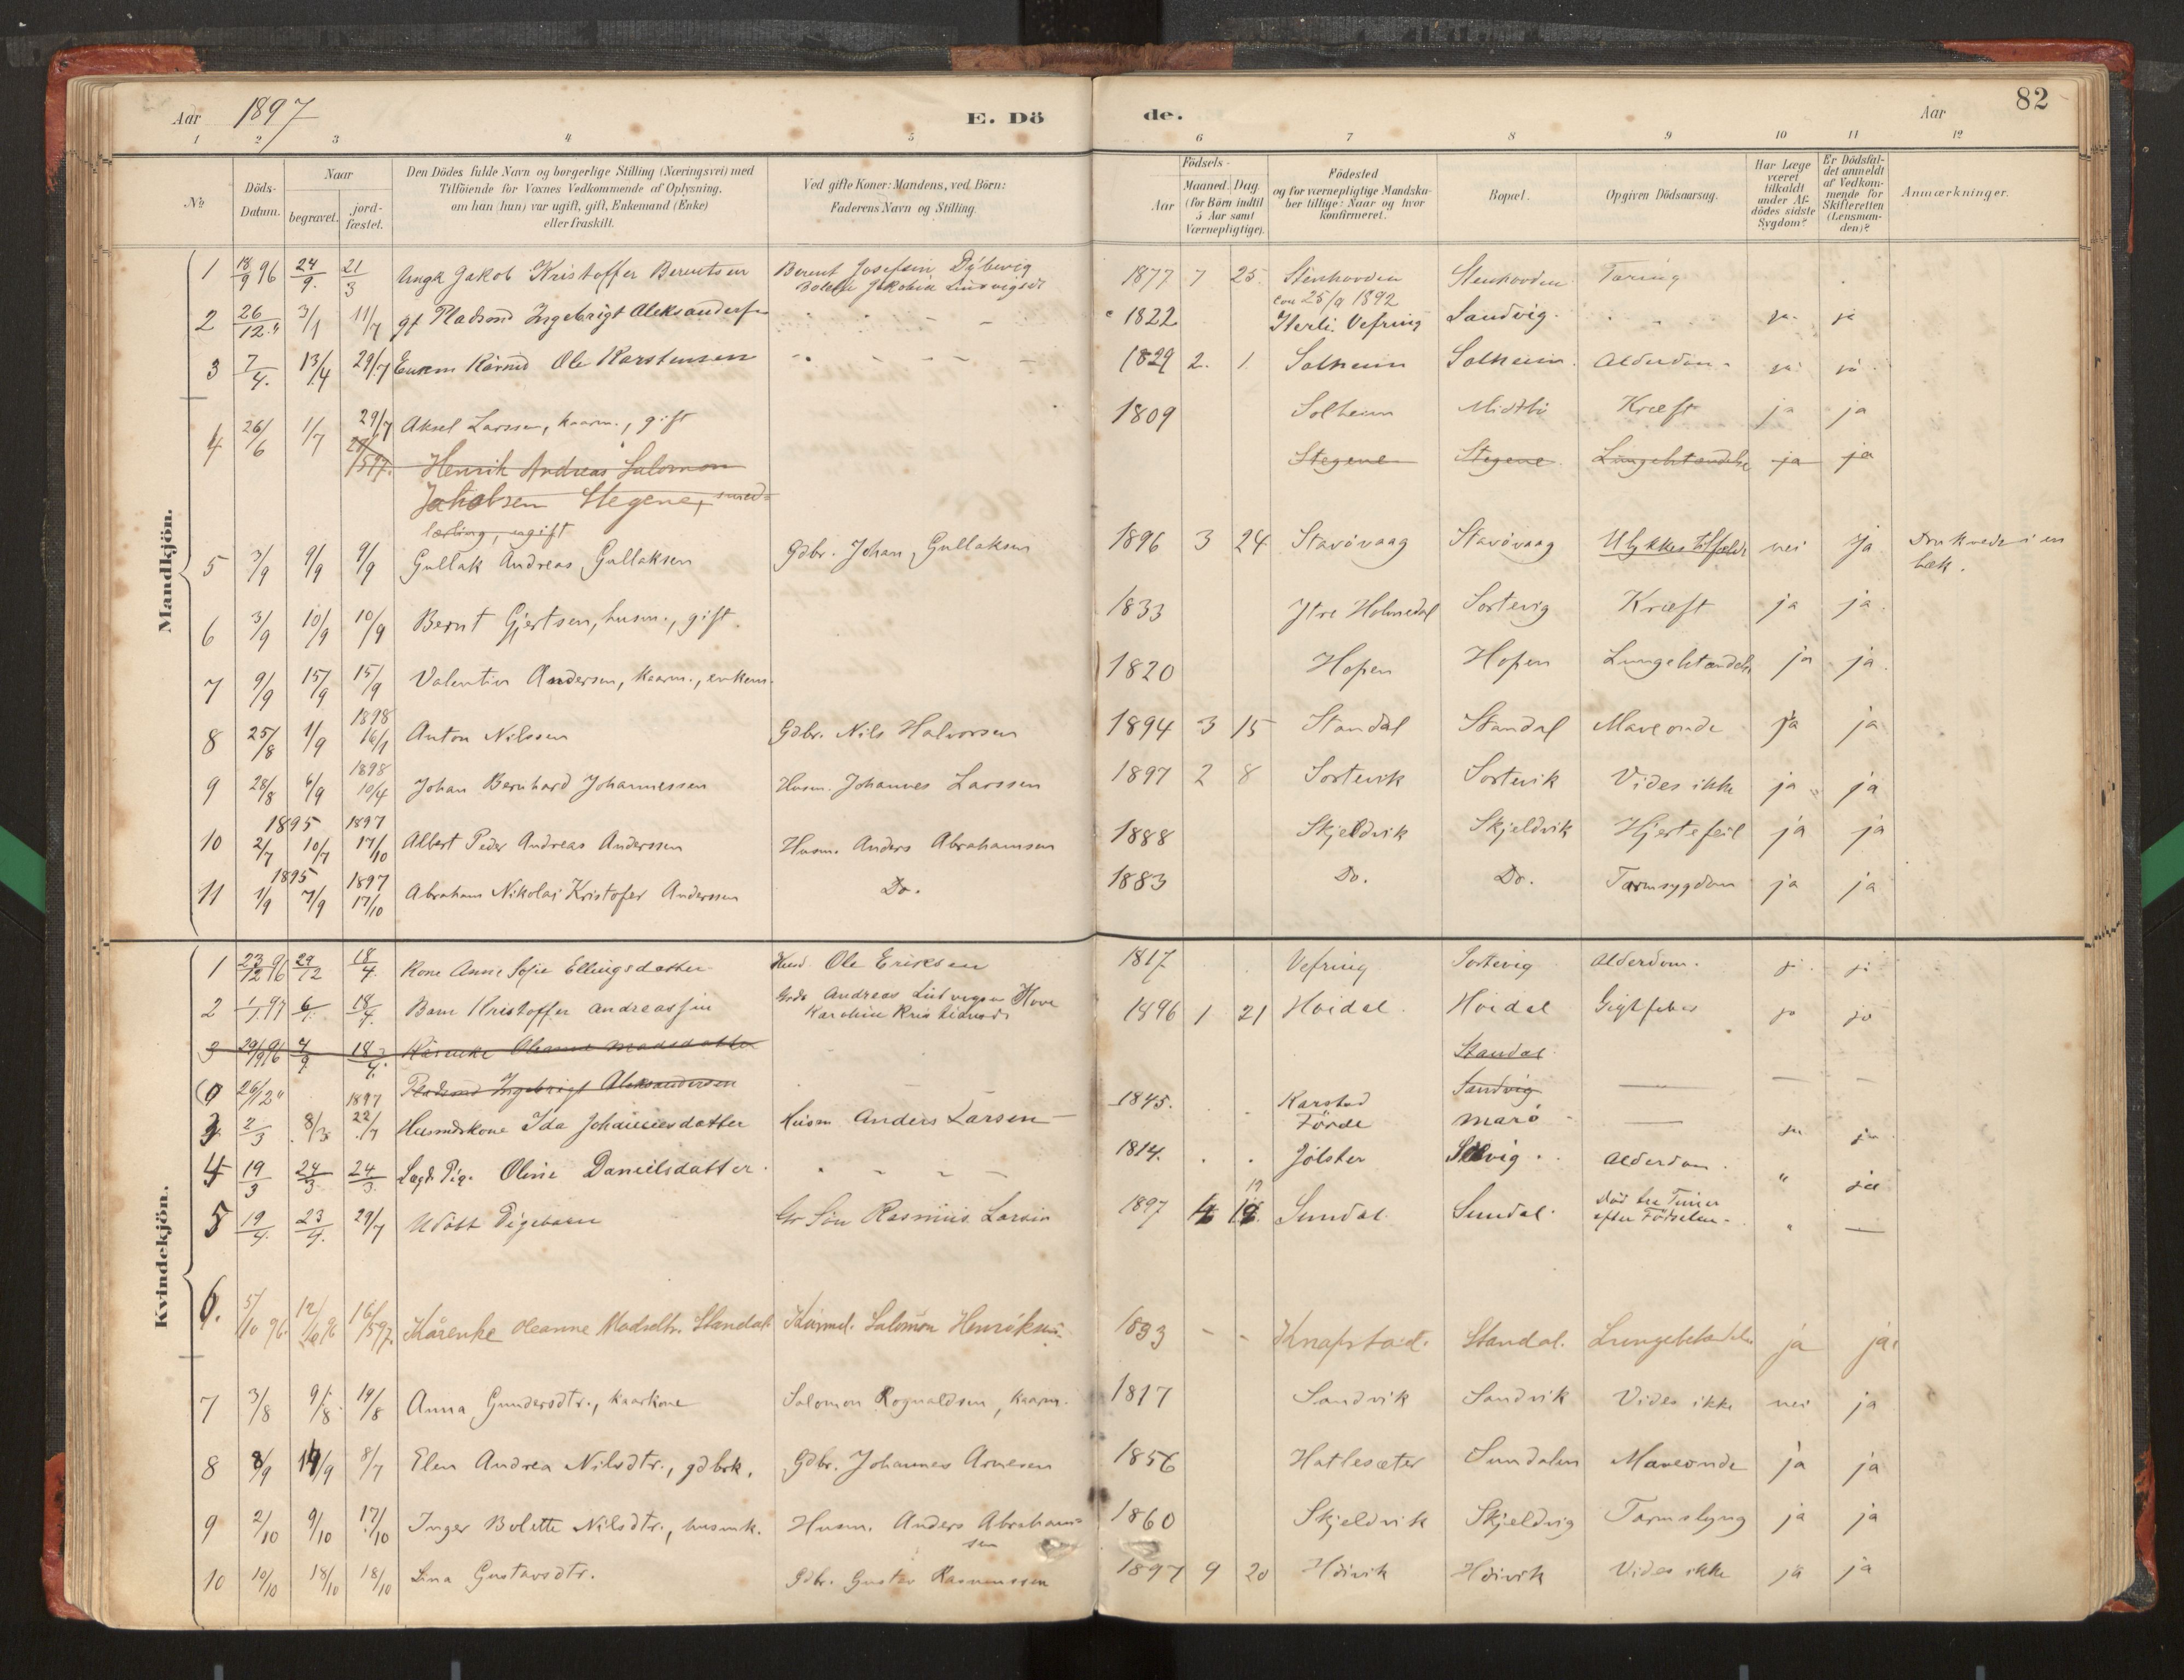 Aar 1897 E. Dö de. Aar 82
1 2 3 4 5 6 7 8 9 10 11 12
No
Döds-Datum.
Naar
begravet.
jord-fæstet.
Den Dödes fulde Navn og borgerlige Stilling (Næringsvei) med
Tilföiende for Voxnes Vedkommende af Oplysning,
om han (hun) var ugift, gift, Enkemand (Enke)
eller fraskilt.
Ved gifte Koner: Mandens, ved Börn:
Faderens Navn og Stilling.
Födsels-
Aar
Maaned. Dag
(for Börn indtil
5 Aar samt
Værnepligtige).
Födested
og for værnepligtige Mandska-
ber tillige: Naar og hvor
konfirmeret.
Bopæl.
Opgiven Dödsaarsag.
Har Læge
været
tilkaldt
under Af-
dödes sidste
Sygdom?
Er Dödsfal-
det anmeldt
af Vedkom-
mende for
Skifteretten
(Lensman-
den)?
Anmærkninger.
Mandkjön.
1 18/9 96 24/9. 21/3 Ungk Jakob Kristoffer Berentsen Berent Josefsin Dybevig 1877 7 25. Stenhovden Stenhovden Tæring
con 25/9 1892
2 26/12 " 3/1 11/7 gf Pladsmd Ingebrigt Aleksandersen 1822 Iterli Vefring Sandvig. ja. ja
3 7/4. 13/4 29/7 Enkem Kårmd Ole Karstensen 1829 2. 1. Solheim Solheim. Alderdom. ja ja
4 26/6 1/7 29/7 Aksel Larssen, kaarm., gift 1809 Solheim Midtbö Kræft ja ja
Henrik Andreas Salomon Stegene Stegene Lungebetændelse ja ja
Jakobsen Stegene, smed-
lærling, ugift
5 3/9 9/9 9/9 Gullak Andreas Gullaksen Gdbr. Johan Gullaksen 1896 3 24 Stavövaag Stavövaag Ulykkestilfælde nei ja Druknede i en
bæk.
6 3/9 10/9 10/9 Bernt Gjertsen, husm., gift. 1833 Ytre Holmedal Sortevig Kræft ja ja.
7 9/9 15/9 15/9 Valentin Andersen, kaarm., enkem. 1820 Hopen Hopen Lungebetændelse ja ja.
8 25/8 1/9 1898 16/1 Anton Nilssen Gdbr. Nils Halvorsen 1894 3 15 Standal Standal Maveonde ja ja
9 28/8 6/9 1898 10/4 Johan Bernhard Johannessen Husm. Johannes Larssen 1897 2 8 Sortevik Sortevik Vides ikke ja ja
10 1895 2/7 10/7 1897 17/10 Albert Peder Andreas Anderssen Husm. Anders Abrahamsen 1888 Skjeldvik Skjeldvik Hjertefeil ja ja
11 1895 1/9 7/9 1897 17/10 Abraham Nikolai Kristofer Anderssen Do. 1883 Do. Do. Tarmsygdom ja ja
Kvindekjön.
1 23/12 96 29/12 18/4. Kone Anne Sofie Ellingsdatter Ole Eriksen 1817 Vefring Sortevig Alderdom. ja. ja
2 1/1. 97 6/1. 18/4. Barn Kristoffer Andreassen Andreas Ludvigsen Hove 1896 1 21 Höidal. Höidal Gigtfeber ja ja
3 29/9 96 7/9 18/4. Kårenke Oleanne Madsdatter Standal
26/12 " Pladsmd Ingebrigt Aleksandersen Sandvig
3 2/3 8/3. 1897 22/7 Husmdskone Ida Johannesdatter Husm Anders Larsen 1845. Karstad Marö
Förde
4 19/3 24/3 24/3. Lægd Pige. Oline Danielsdatter. 1814. Jölster Alderdom. " ja
5 19/4. 23/4. 29/7 Udöbt Pigebarn Rasmus Larsen 1897 4 19 Sundal. Sundal. död tre Timer
efter Födselen.
6. 5/10 96. 12/10 96 16/5 97. Kårenke Oleanne Madsdtr. Standal Kaarmd. Salomon Henriksen. 1833 Knapstad. Standal. Lungebetændelse ja ja.
7 3/8 9/8. 19/8 Anna Gundersdtr., kaarkone Salomon Rognaldsen, kaarm. 1817 Sandvik Sandvik Vides ikke nei ja
8 8/9 14/9 8/7 Elen Andrea Nilsdtr., gdbrk. Gdbr. Johannes Arnesen 1856 Hatlesæter Sundalen Maveonde ja ja
9 2/10 9/10 17/10 Inger Bolette Nilsdtr., husmk. Husm. Anders Abraham-
sen 1860 Skjeldvik Skjeldvig Tarmslyng ja ja
10 10/10 18/10 18/10 Lina Gustavsdtr. Gdbr. Gustav Rasmussen 1897 9 20 Höivik Höivik Vides ikke ja ja